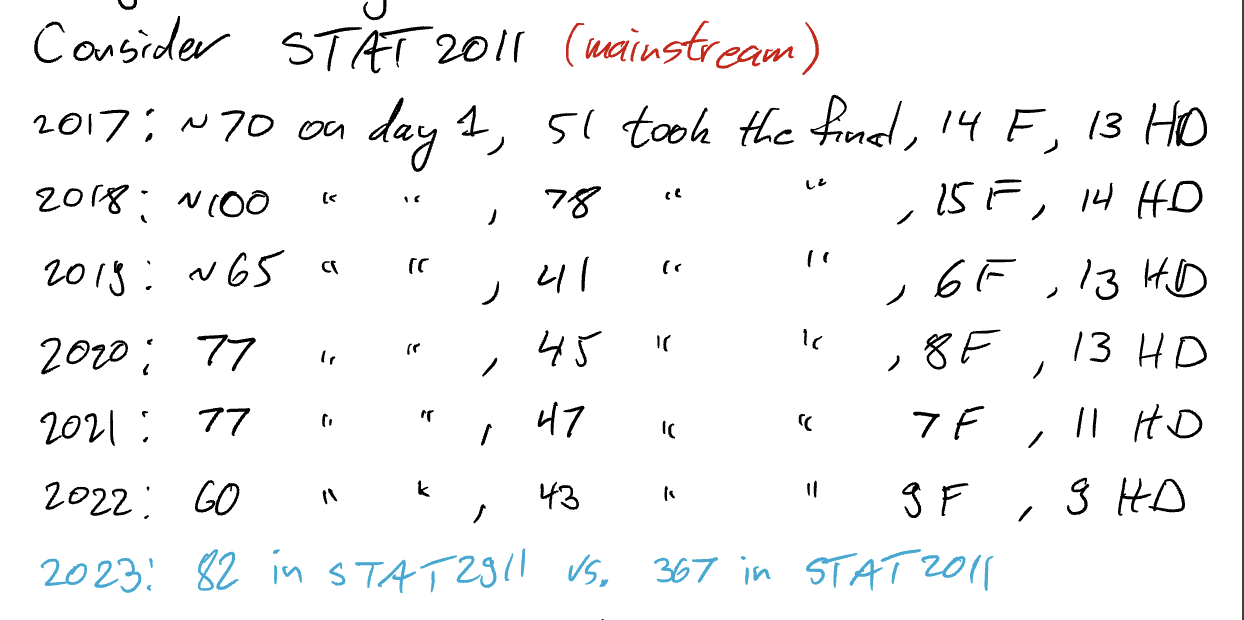 Consider STAT2011 (mainstream)
2017: ~70 on day 1, 51 took the final, 14 F, 13 HD
2018: ~100 " " , 78 " " , 15 F, 14 HD
2019: ~65 " " , 41 " " , 6F , 13 HD
2020: 77 " " , 45 " " , 8F , 13 HD
2021: 77 " " , 47 " " 7F , 11 HD
2022: 60 " " , 43 " " 9F , 9 HD
2023: 82 in STAT2911 vs. 367 in STAT2011